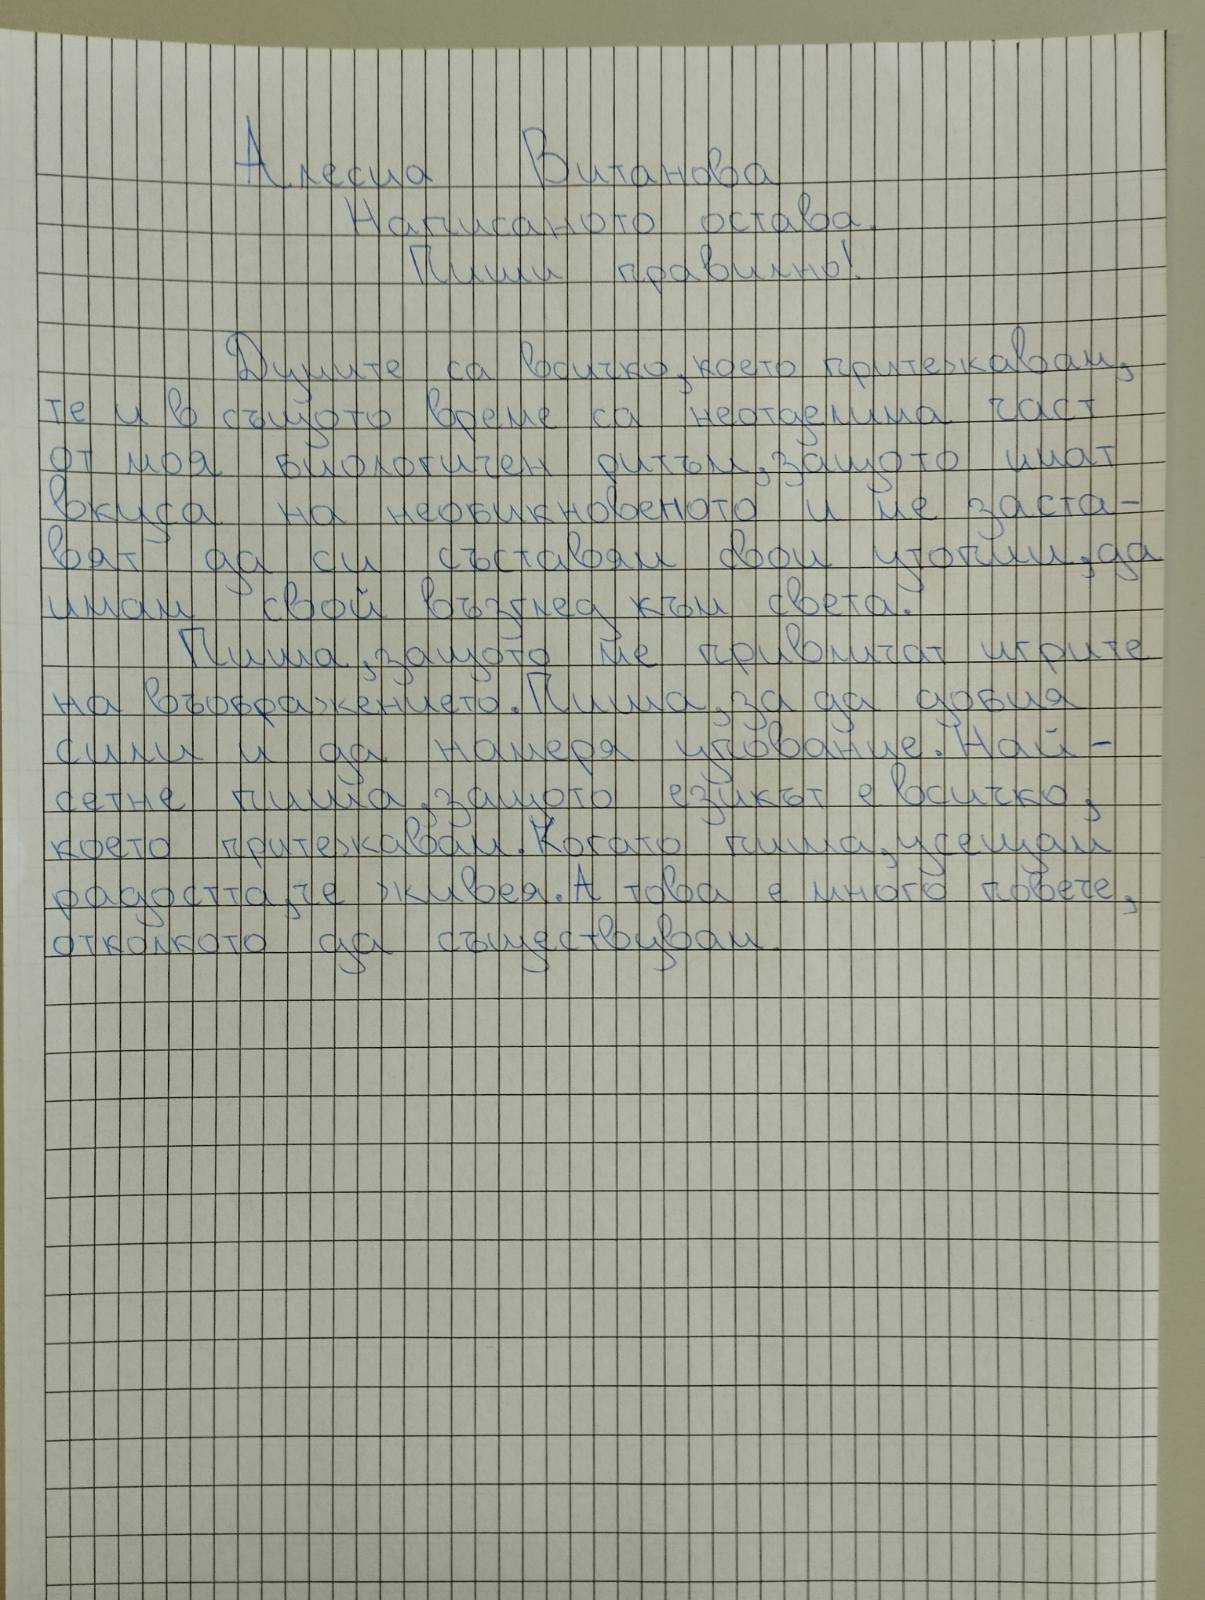 Алесиа Витанова
Написаното остава.
Пиши правилно!
Думите са всичко, което притежавам,
те и в същото време са неотделима част
от моя биологичен ритъм, защото имат
вкуса на необикновеното и ме заста-
вят да си съставям свои утопии, да
имам свой възглед към света.
Пиша, защото ме привличат игрите
на въображението. Пиша, за да добия
сили и да намеря упование. Най-
сетне пиша, защото езикът е всичко,
което притежавам. Когато пиша, усещам
радостта, че живея. А това е много повече,
отколкото да съществувам.